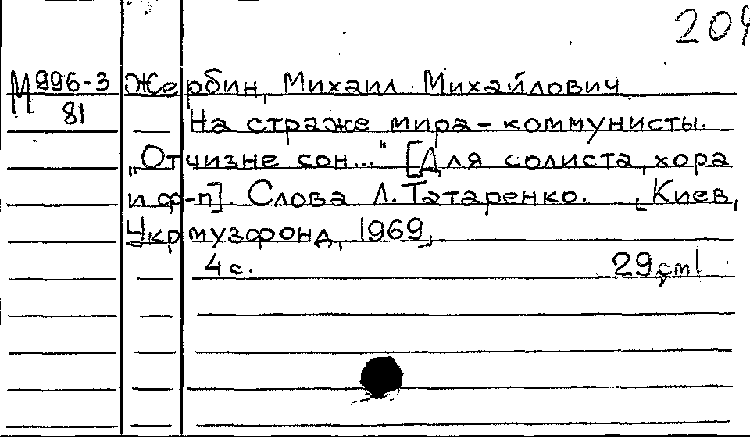 209
М 996-3 Жербин, Михаил Михайлович
81 На страже мира - коммунисты.
„Отчизне сон..." [Для солиста, хора
и ф-п]. Слова Л. Татаренко. [Киев,
Укрмузфонд, 1969]
4 с. 29 cm